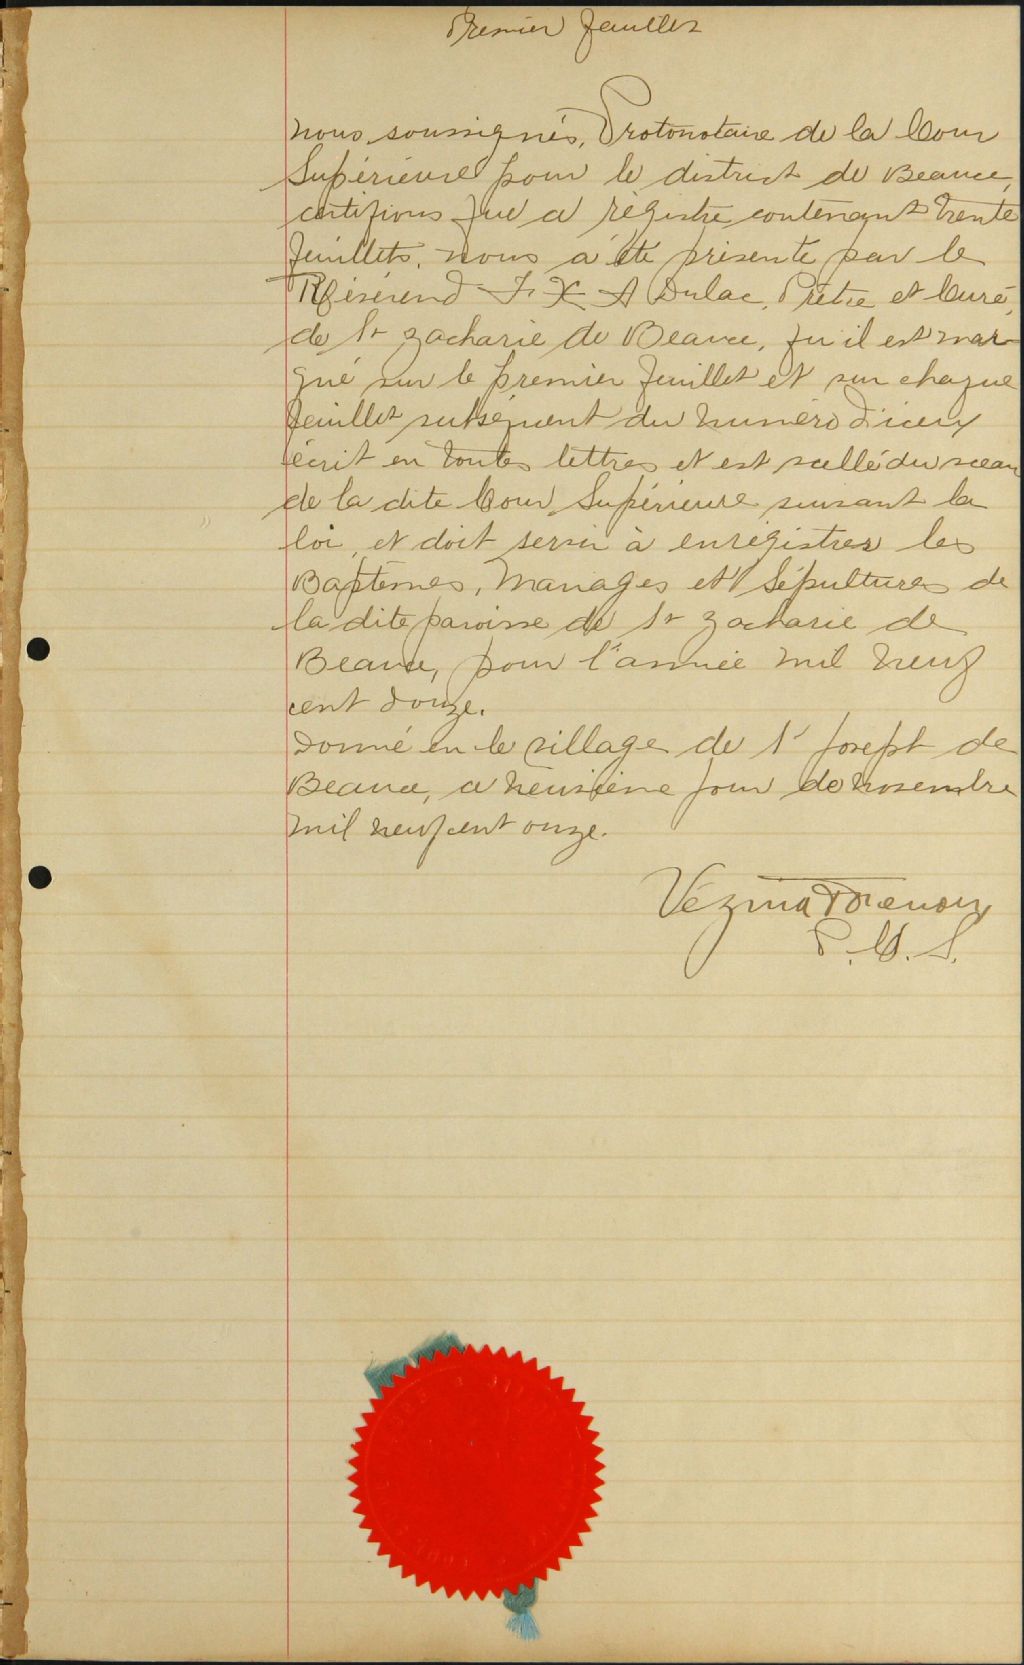 Premier feuillet
Nous soussignés, Protonotaire de la Cour
Supérieure pour le district de Beauce,
certifions que ce régistre contenant trente
feuillets, nous a été présenté par le
Révérend F. X. A Dulac, Prêtre et Curé,
de St Zacharie de Beauce, qu'il est mar-
qué sur le premier feuillet et sur chaque
feuillet subséquent du numéro d'iceux
écrit en toutes lettres et est scellé du sceau
de la dite Cour Supérieure suivant la
loi, et doit servir à enrégistrer les
Baptêmes, Mariages et Sépultures de
la dite paroisse de St Zacharie de
Beauce, pour l'année mil neuf
cent douze.
Donné en le village de St Joseph de
Beauce, ce neuvième jour de novembre
mil neuf cent onze.
Vézina
P. C. S.